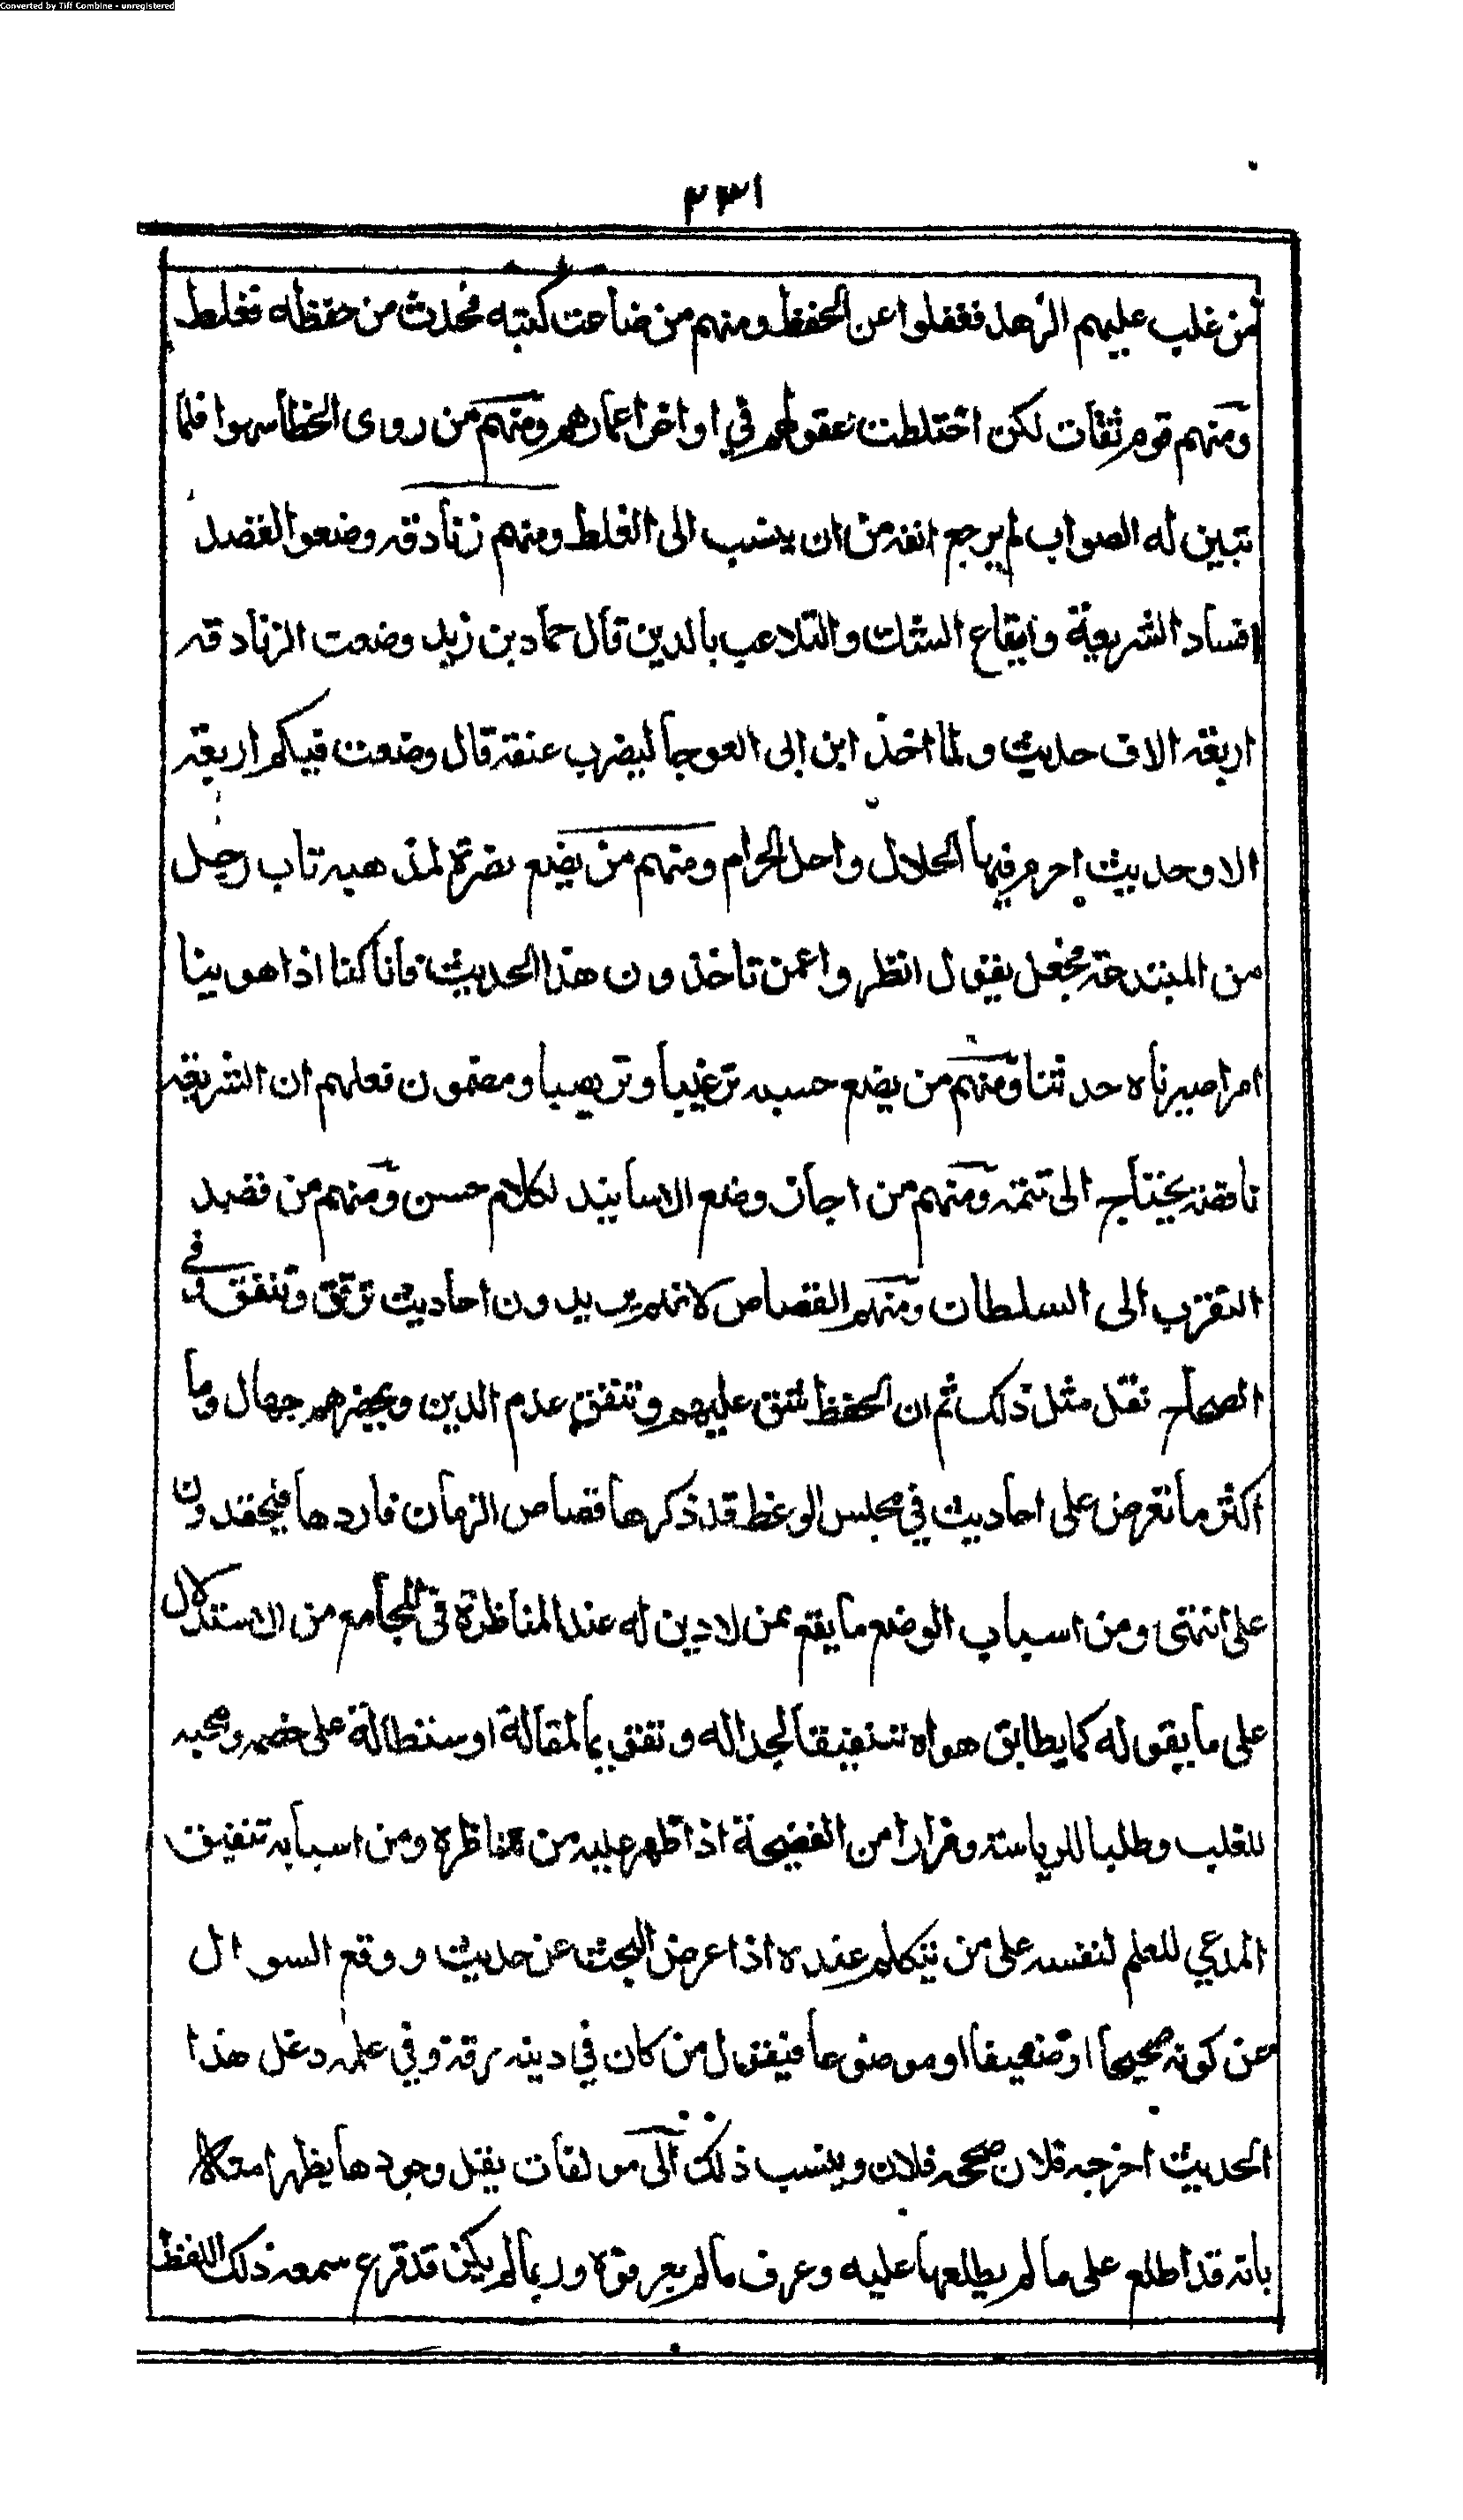 Converted by Tiff Combine - unregistered
٢٣١
من غلب عليهم الزهد فغفلوا عن الحفظ ومنهم من ضاعت كتبه فحدث من حفظه فغلط
ومنهم قوم ثقات لكن اختلطت عقولهم في اواخر اعمارهم ومنهم من روى الخطأ سهوا فلما
تبين له الصواب لم يرجع انفة من ان ينسب الى الغلط ومنهم زنادقه وضعوا لقصد
افساد الشريعة وايقاع الشك والتلاعب بالدين قال حماد بن زيد وضعت الزنادقه
اربعة الاف حديث ولما اخذ ابن ابى العوجا ليضرب عنقه قال وضعت فيكم اربعة
الاف حديث احرم فيها الحلال واحل الحرام ومنهم من يضع نصرة لمذهبه تاب رجل
من المبتدعة فجعل يقول انظروا عمن تاخذون هذا الحديث فانا كنا اذا هوينا
امرا صيرناه حديثا ومنهم من يضع حسبه ترغيبا وترهيبا ومضمون فعلهم ان الشريعة
ناقصة يحتاج الى تتمة ومنهم من اجاز وضع الاسانيد لكلام حسن ومنهم من قصد
التقرب الى السلطان ومنهم القصاص لانهم يريدون احاديث ترقق وتنفق وفي
الصحاح نقل مثل ذلك ثم ان الحفظ شق عليهم وتتفق عدم الدين ويحضرهم جهال وما
اكثر ما تعرض على احاديث في مجلس الوعظ قد ذكرها قصاص الزمان فاردها فيحقدون
على انتهى ومن اسباب الوضع ما يقع ممن لا دين له عند المناظرة في المجامع من الاستدلال
على ما يقوله كما يطابق هواه تنفيقا لجداله وتقويما لمقالة اوستطالة على خصمه ومحبه
للغلب وطلبا للرياسة وفرارا من الفضيحة اذا ظهر عليه من مناظره ومن اسبابه تنفيق
المدعي للعلم لنفسه على من يتكلم عنده اذا عرض البحث عن حديث ووقع السوال
عن كونه صحيحا او ضعيفا او موضوعا فيقول من كان في دينه رقة وفي علمه دغل هذا
الحديث اخرجه فلان صححه فلان وينسب ذلك الى مولفات يقل وجودها يظهرا متكلا
بانه قد اطلع على ما لم يطلعوا عليه وعرف ما لم يعرفوه وربما لم يكن قد قرع سمعه ذلك اللفظ